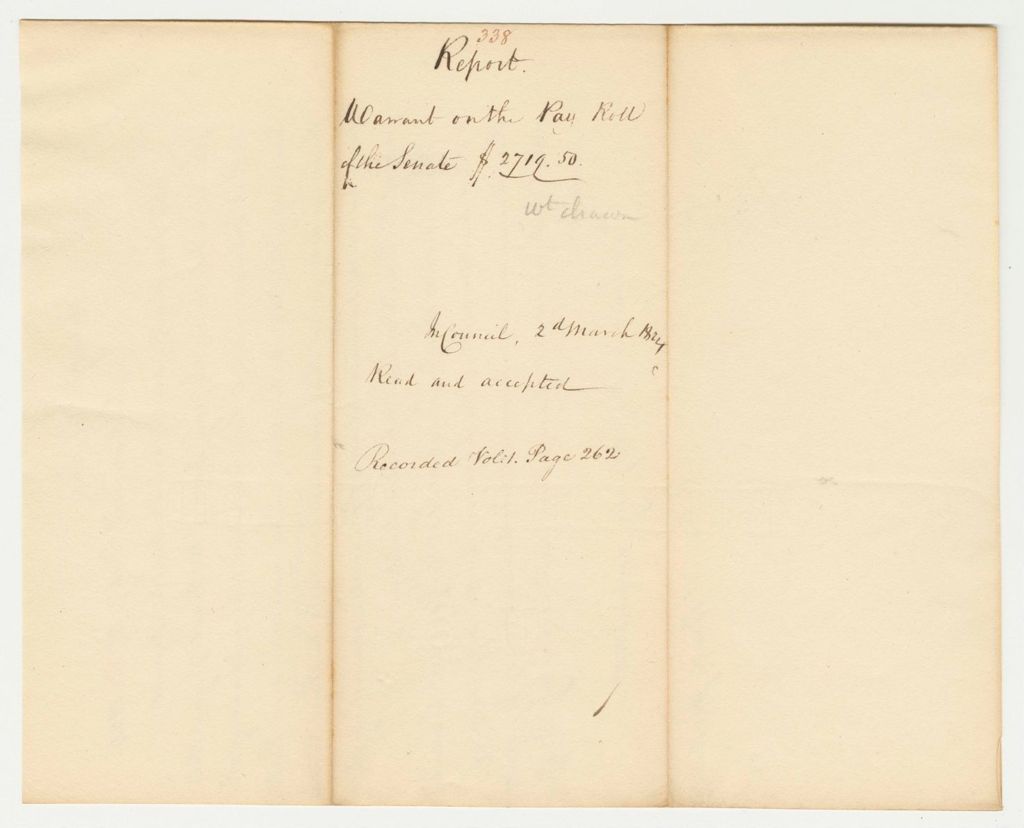 338
Report.
Warrant on the Pay Roll
of the Senate $ 2719.50.
Wt drawn
In Council, 2d March 1824
Read and accepted
Recorded Vol: 1. Page 262